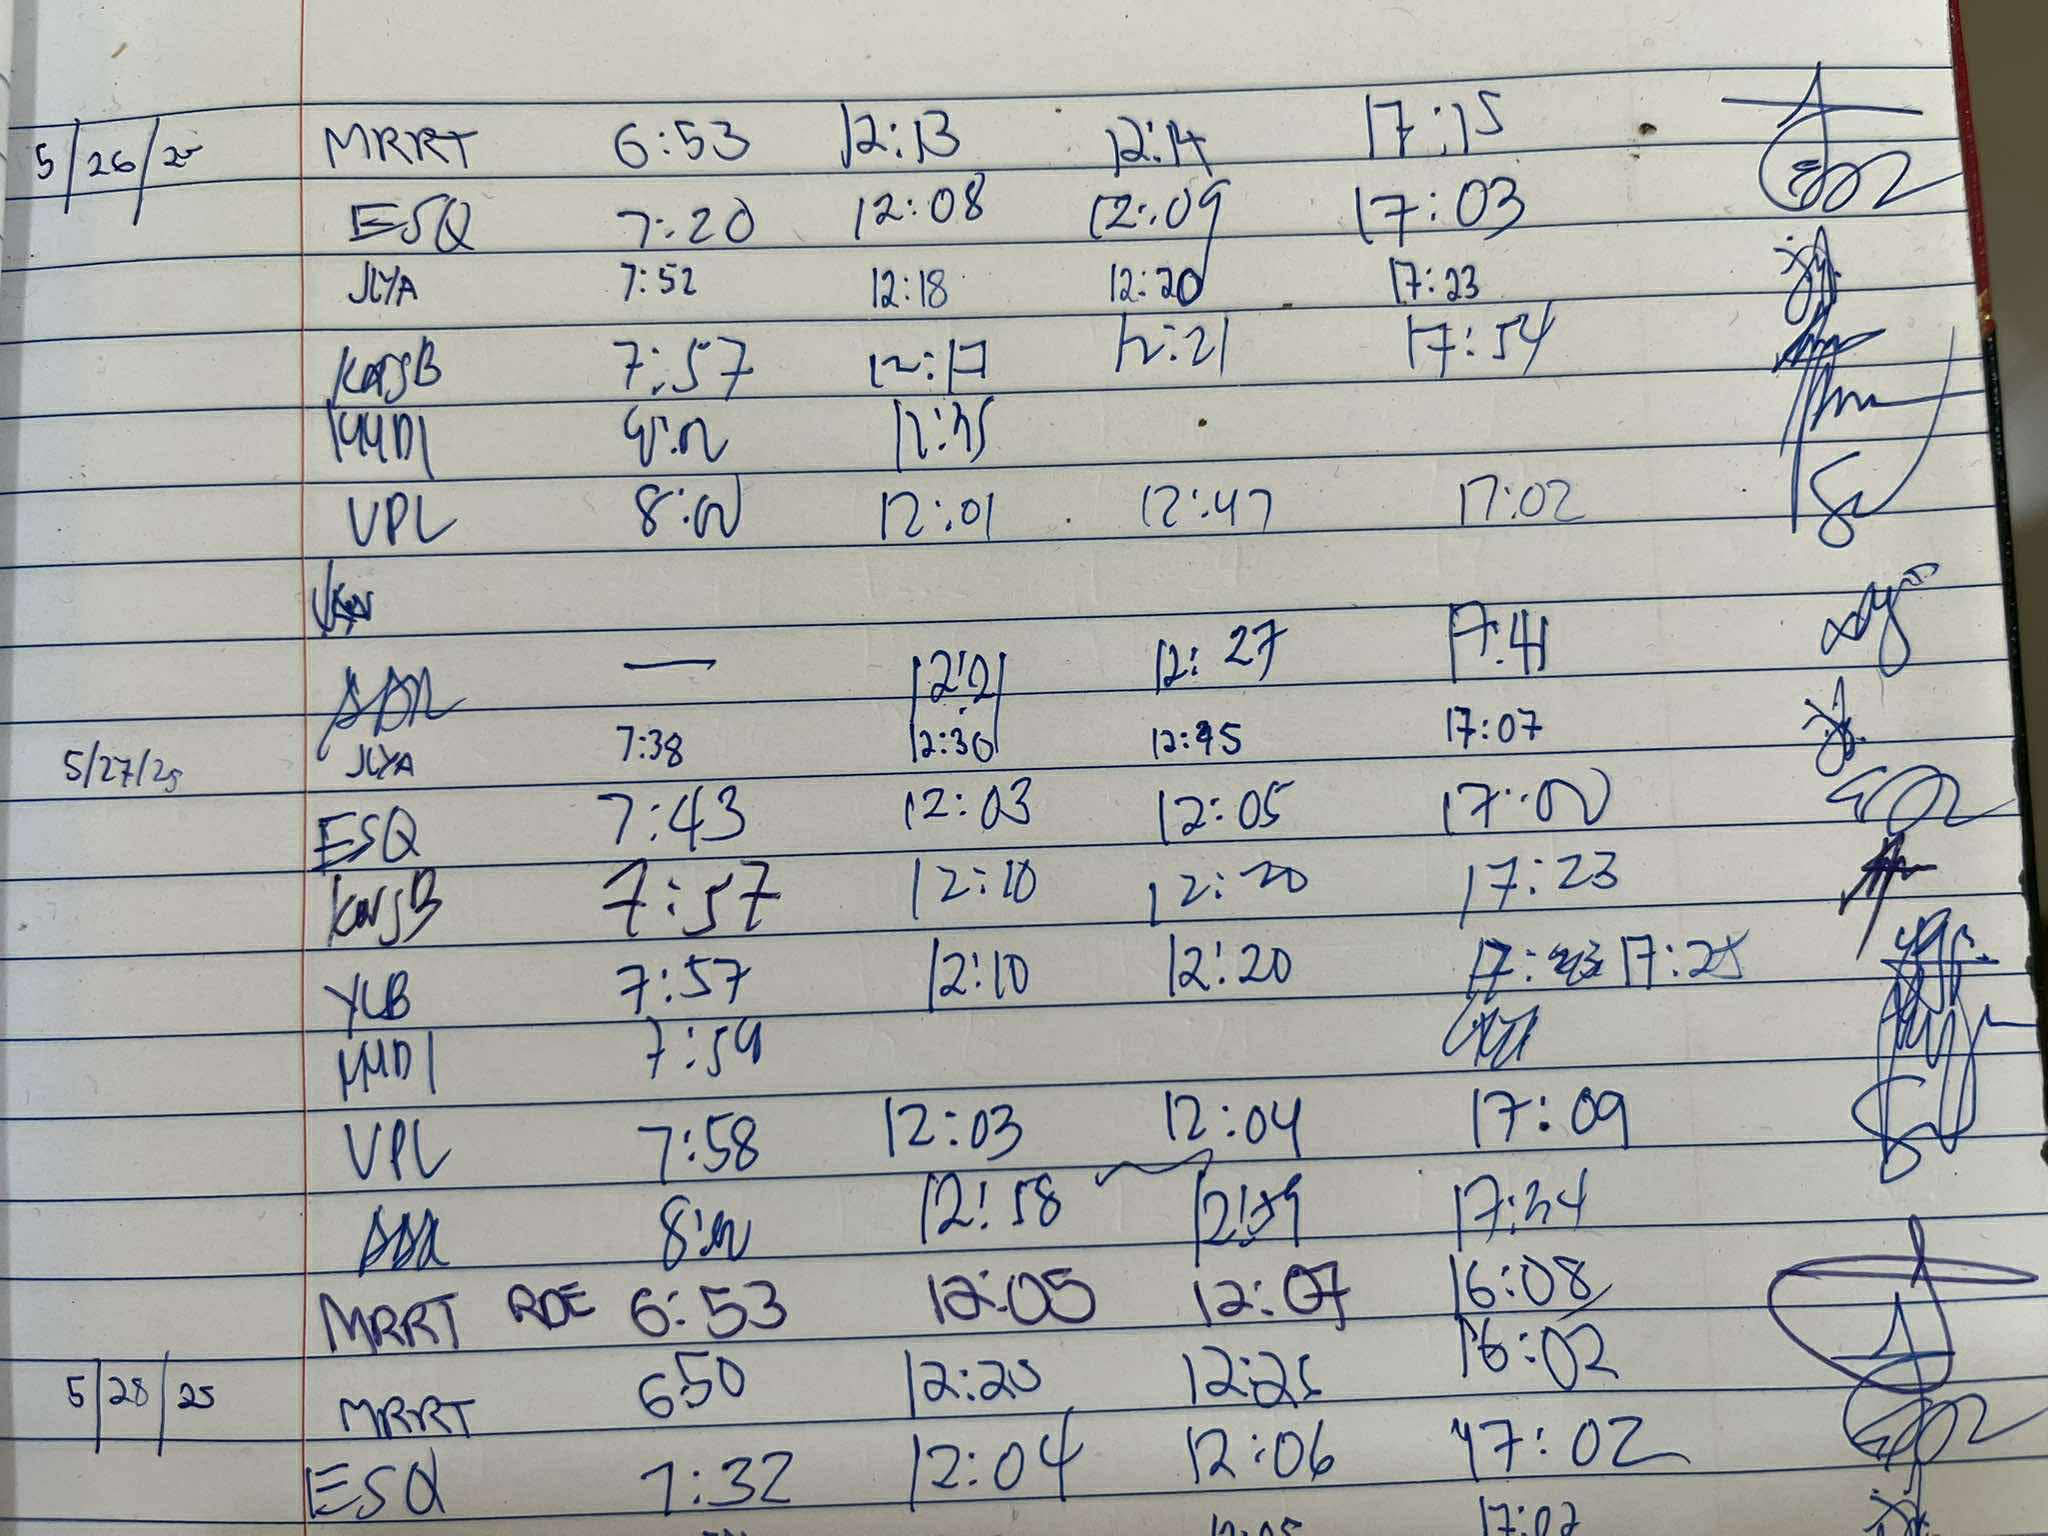 5/26/25 MRRT 6:53 12:13 12:14 17:15
ESQ 7:20 12:08 12:09 17:03
JLYA 7:52 12:18 12:20 17:23
7:57 12:17 12:21 17:54
12:35
VPL 8:00 12:01 12:47 17:02
— 12:21 12:27 17:41
5/27/25 JLYA 7:38 12:30 12:45 17:07
ESQ 7:43 12:03 12:05 17:00
7:57 12:10 12:20 17:23
YLB 7:57 12:10 12:20 17:25
7:59
VPL 7:58 12:03 12:04 17:09
8:00 12:58 12:59 17:34
MRRT RDE 6:53 12:05 12:07 16:08
5/28/25 MRRT 6:50 12:25 16:02
ESQ 7:32 12:04 12:06 17:02